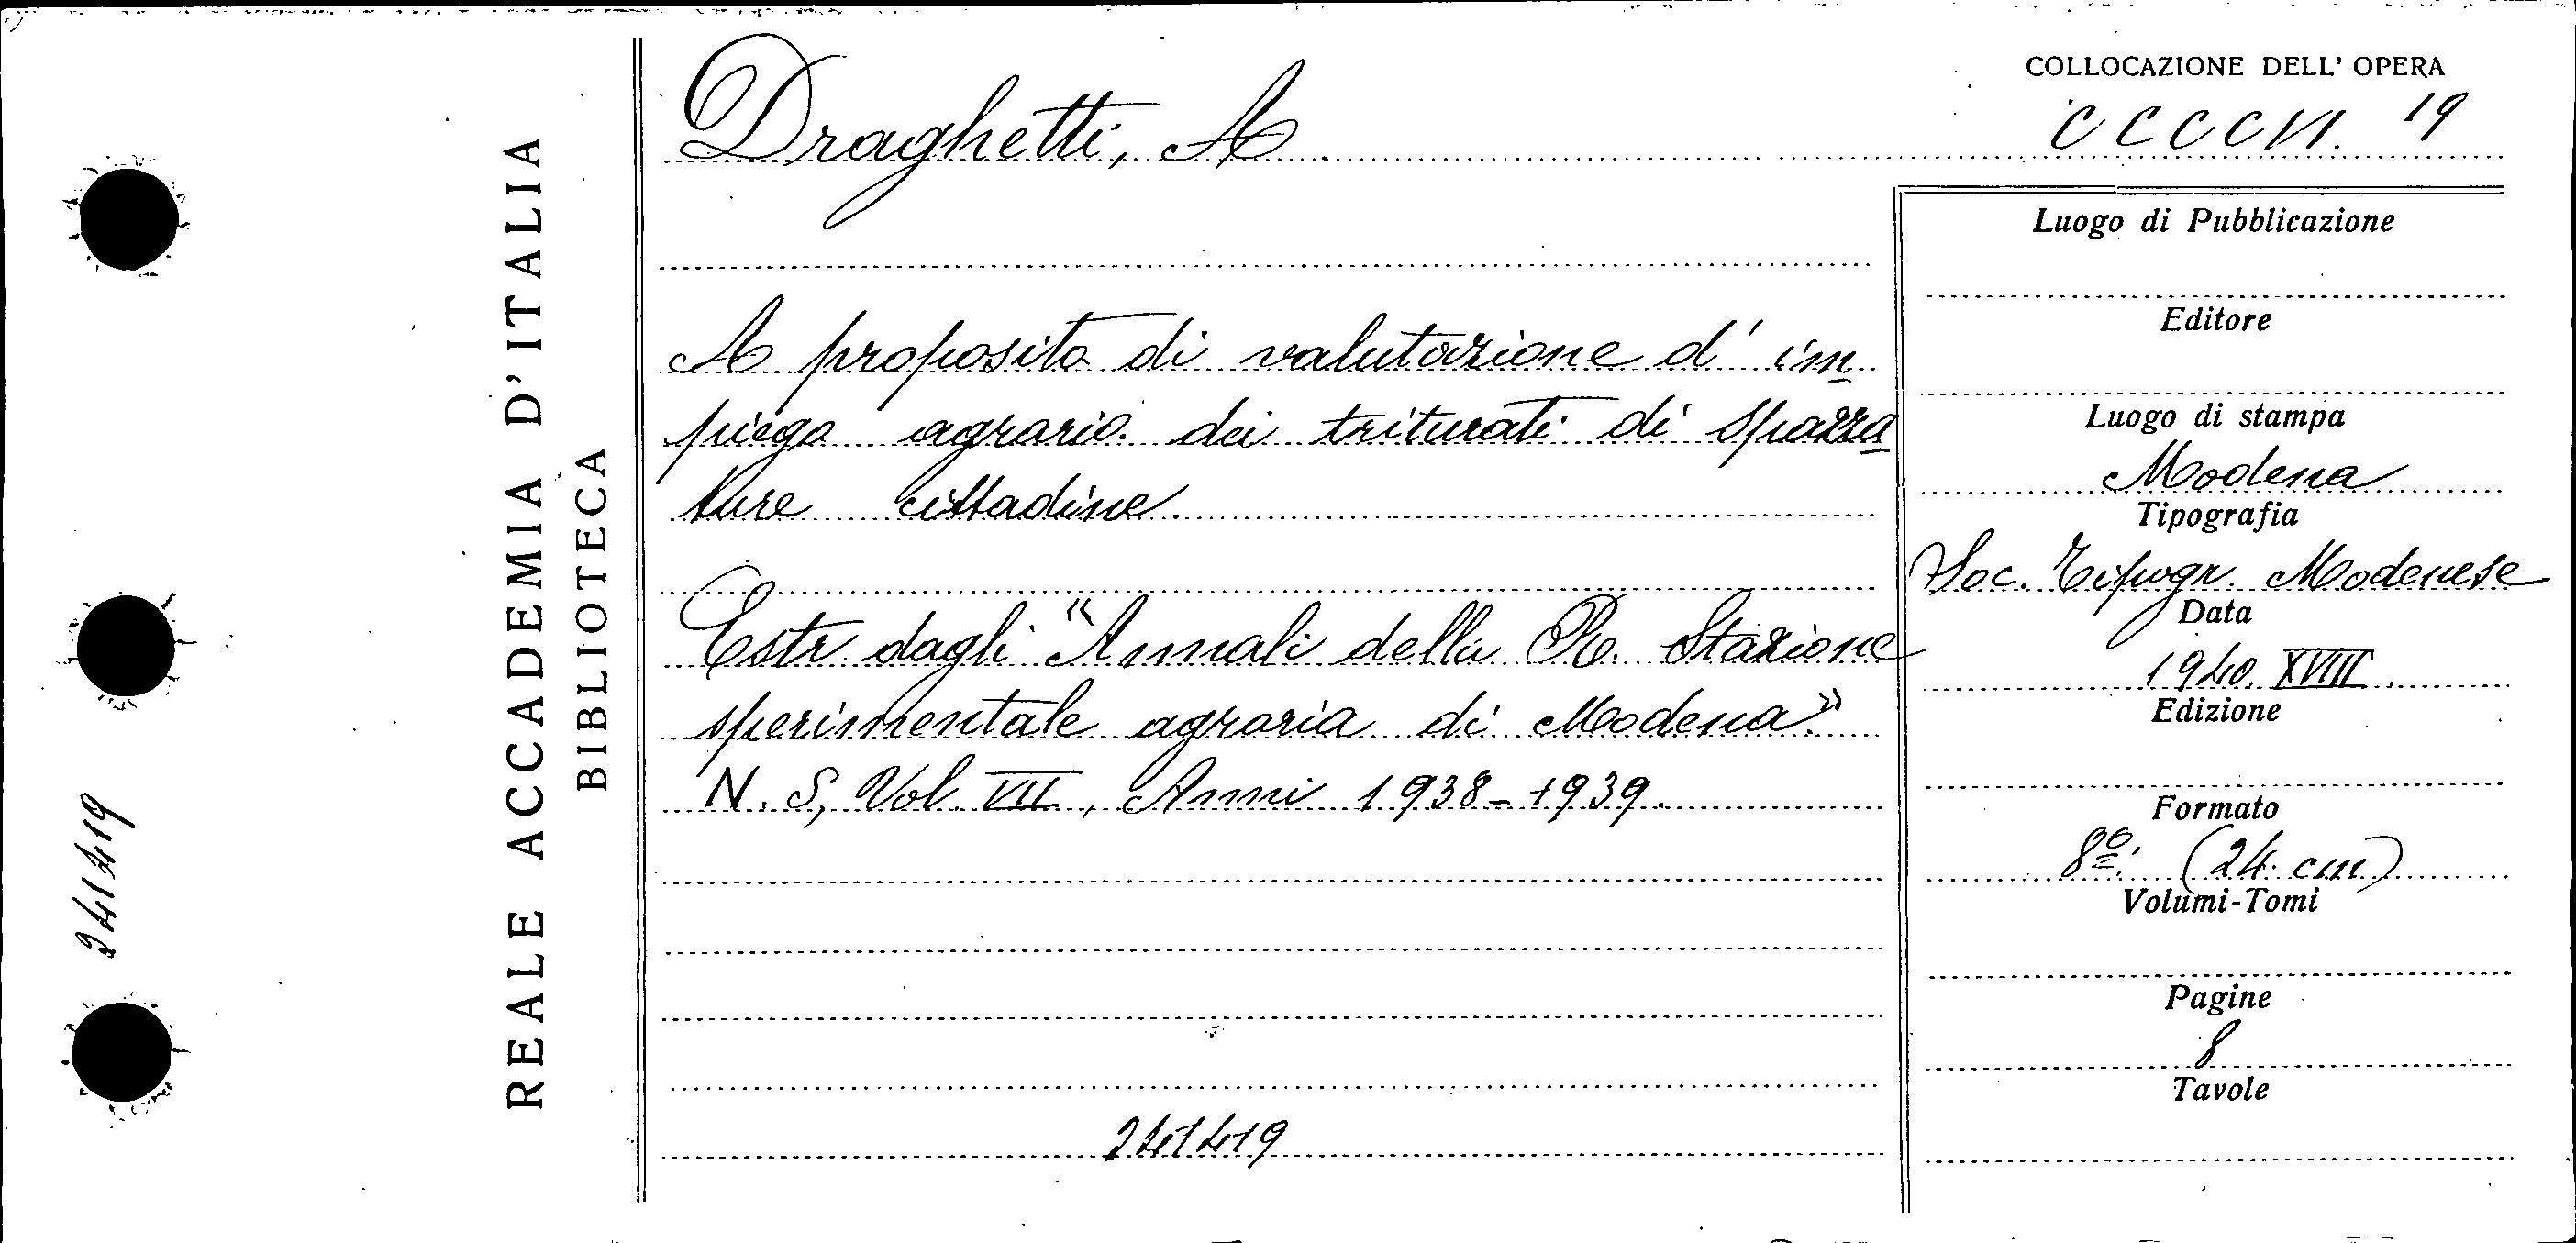 241419
REALE ACCADEMIA D'ITALIA
BIBLIOTECA
Draghetti, A.
A proposito di valutazione d' im
piego agrario dei triturati di spazza
ture cittadine.
Estr. dagli "Annali della R. Stazione
sperimentale agraria di Modena"
N. S, Vol. VII, Anni 1938-1939.
241419
COLLOCAZIONE DELL' OPERA
CCCCVI. 19
Luogo di Pubblicazione
Editore
Luogo di stampa
Modena
Tipografia
Soc. Tipogr. Modenese
Data
1940. XVIII
Edizione
Formato
8º. (24. cm)
Volumi-Tomi
Pagine
8
Tavole